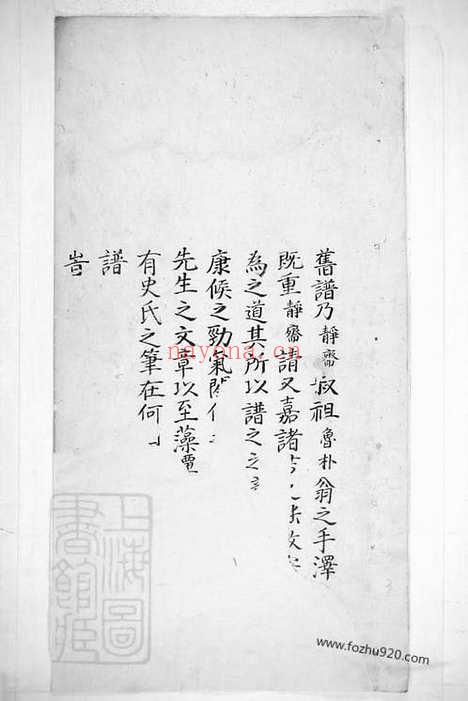 舊譜乃靜齋叔祖魯朴翁之手澤
既重靜齋請又嘉諸
為之道其所以譜之之意
康侯之勁氣
先生之文章以至藻
有史氏之筆在何
譜
旹
上海圖書館藏
nayona.cn
www.fozhu920.com